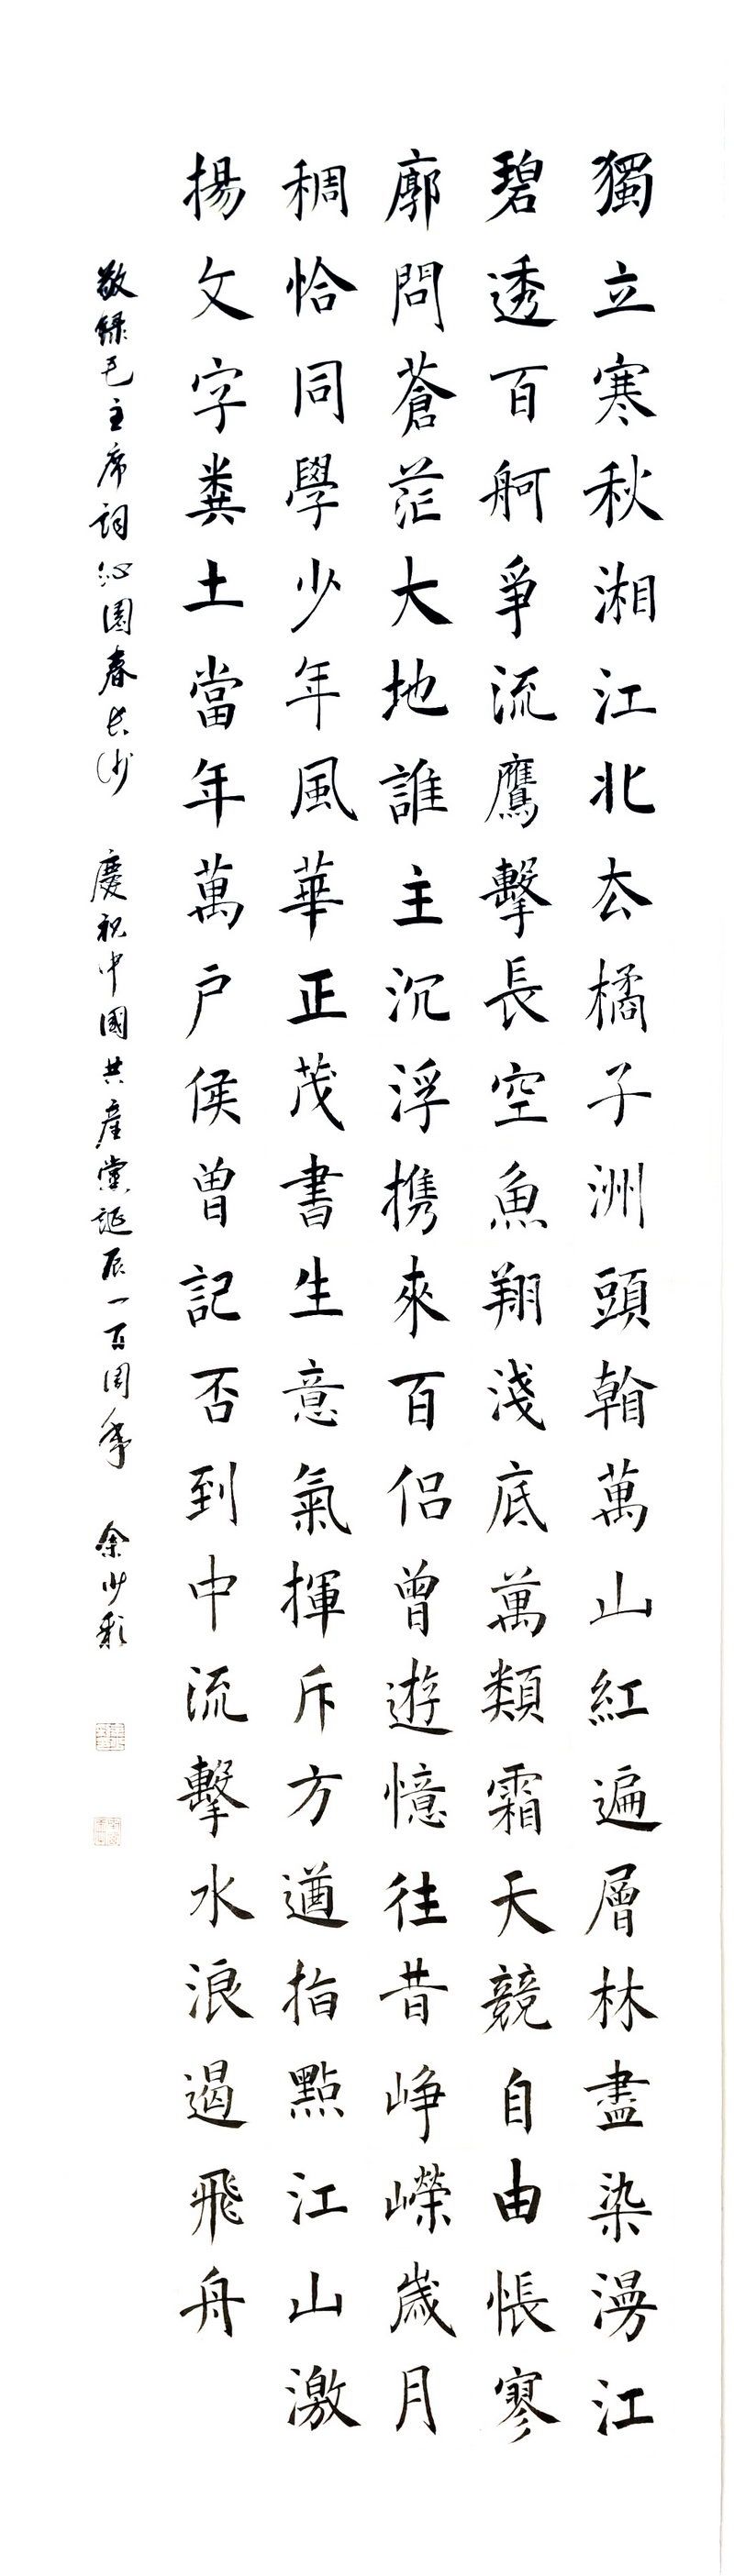 獨立寒秋湘江北厺橘子洲頭看萬山紅遍層林盡染漫江
碧透百舸爭流鷹擊長空魚翔淺底萬類霜天競自由悵寥
廓問蒼茫大地誰主沉浮携來百侣曾遊憶往昔崢嶸歲月
稠恰同學少年風華正茂書生意氣揮斥方遒指點江山激
揚文字糞土當年萬户侯曾記否到中流擊水浪遏飛舟
敬録毛主席詞沁園春長沙 慶祝中國共産黨誕辰一百周年 余少彩